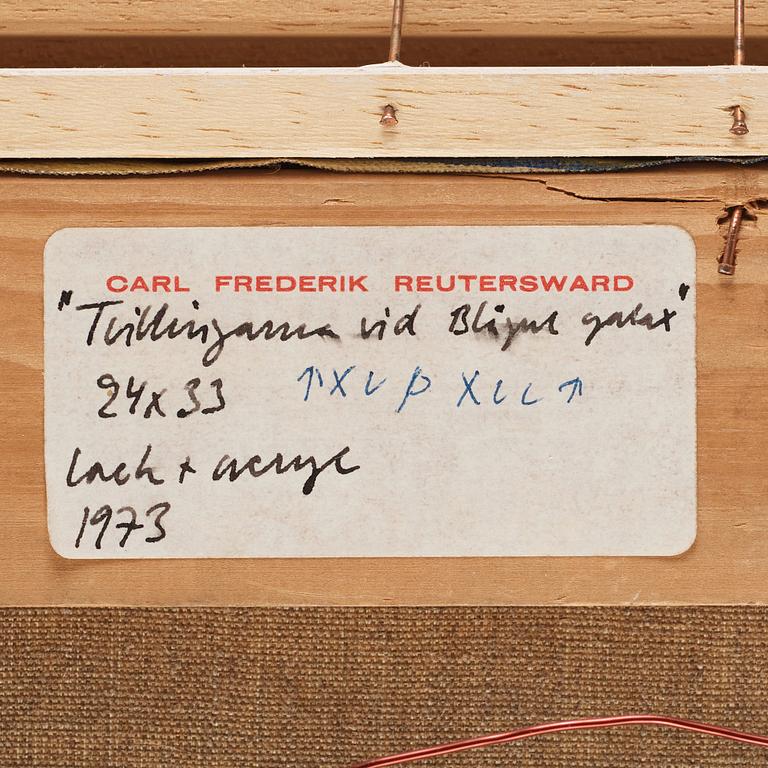 CARL FREDERIK REUTERSWARD
"Tvillingarna vid galax"
24x33
lack + acryl
1973